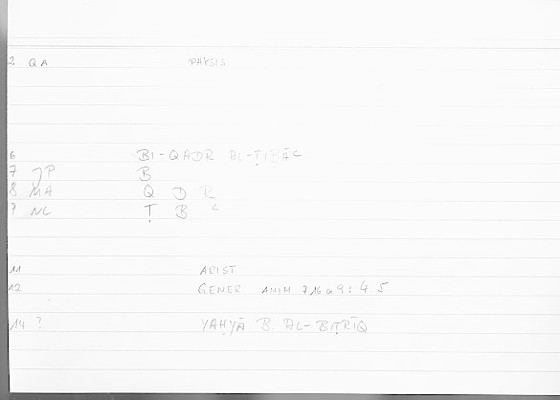 2 QA PHYSIS
6 BI-QADR AL-ṬIBĀʿ
7 JP B
8 MA Q D R
9 NC Ṭ B ʿ
11 ARIST
12 GENER ANIM 716a9: 4.5
14 ? YAḤYĀ B. AL-BIṬRĪQ